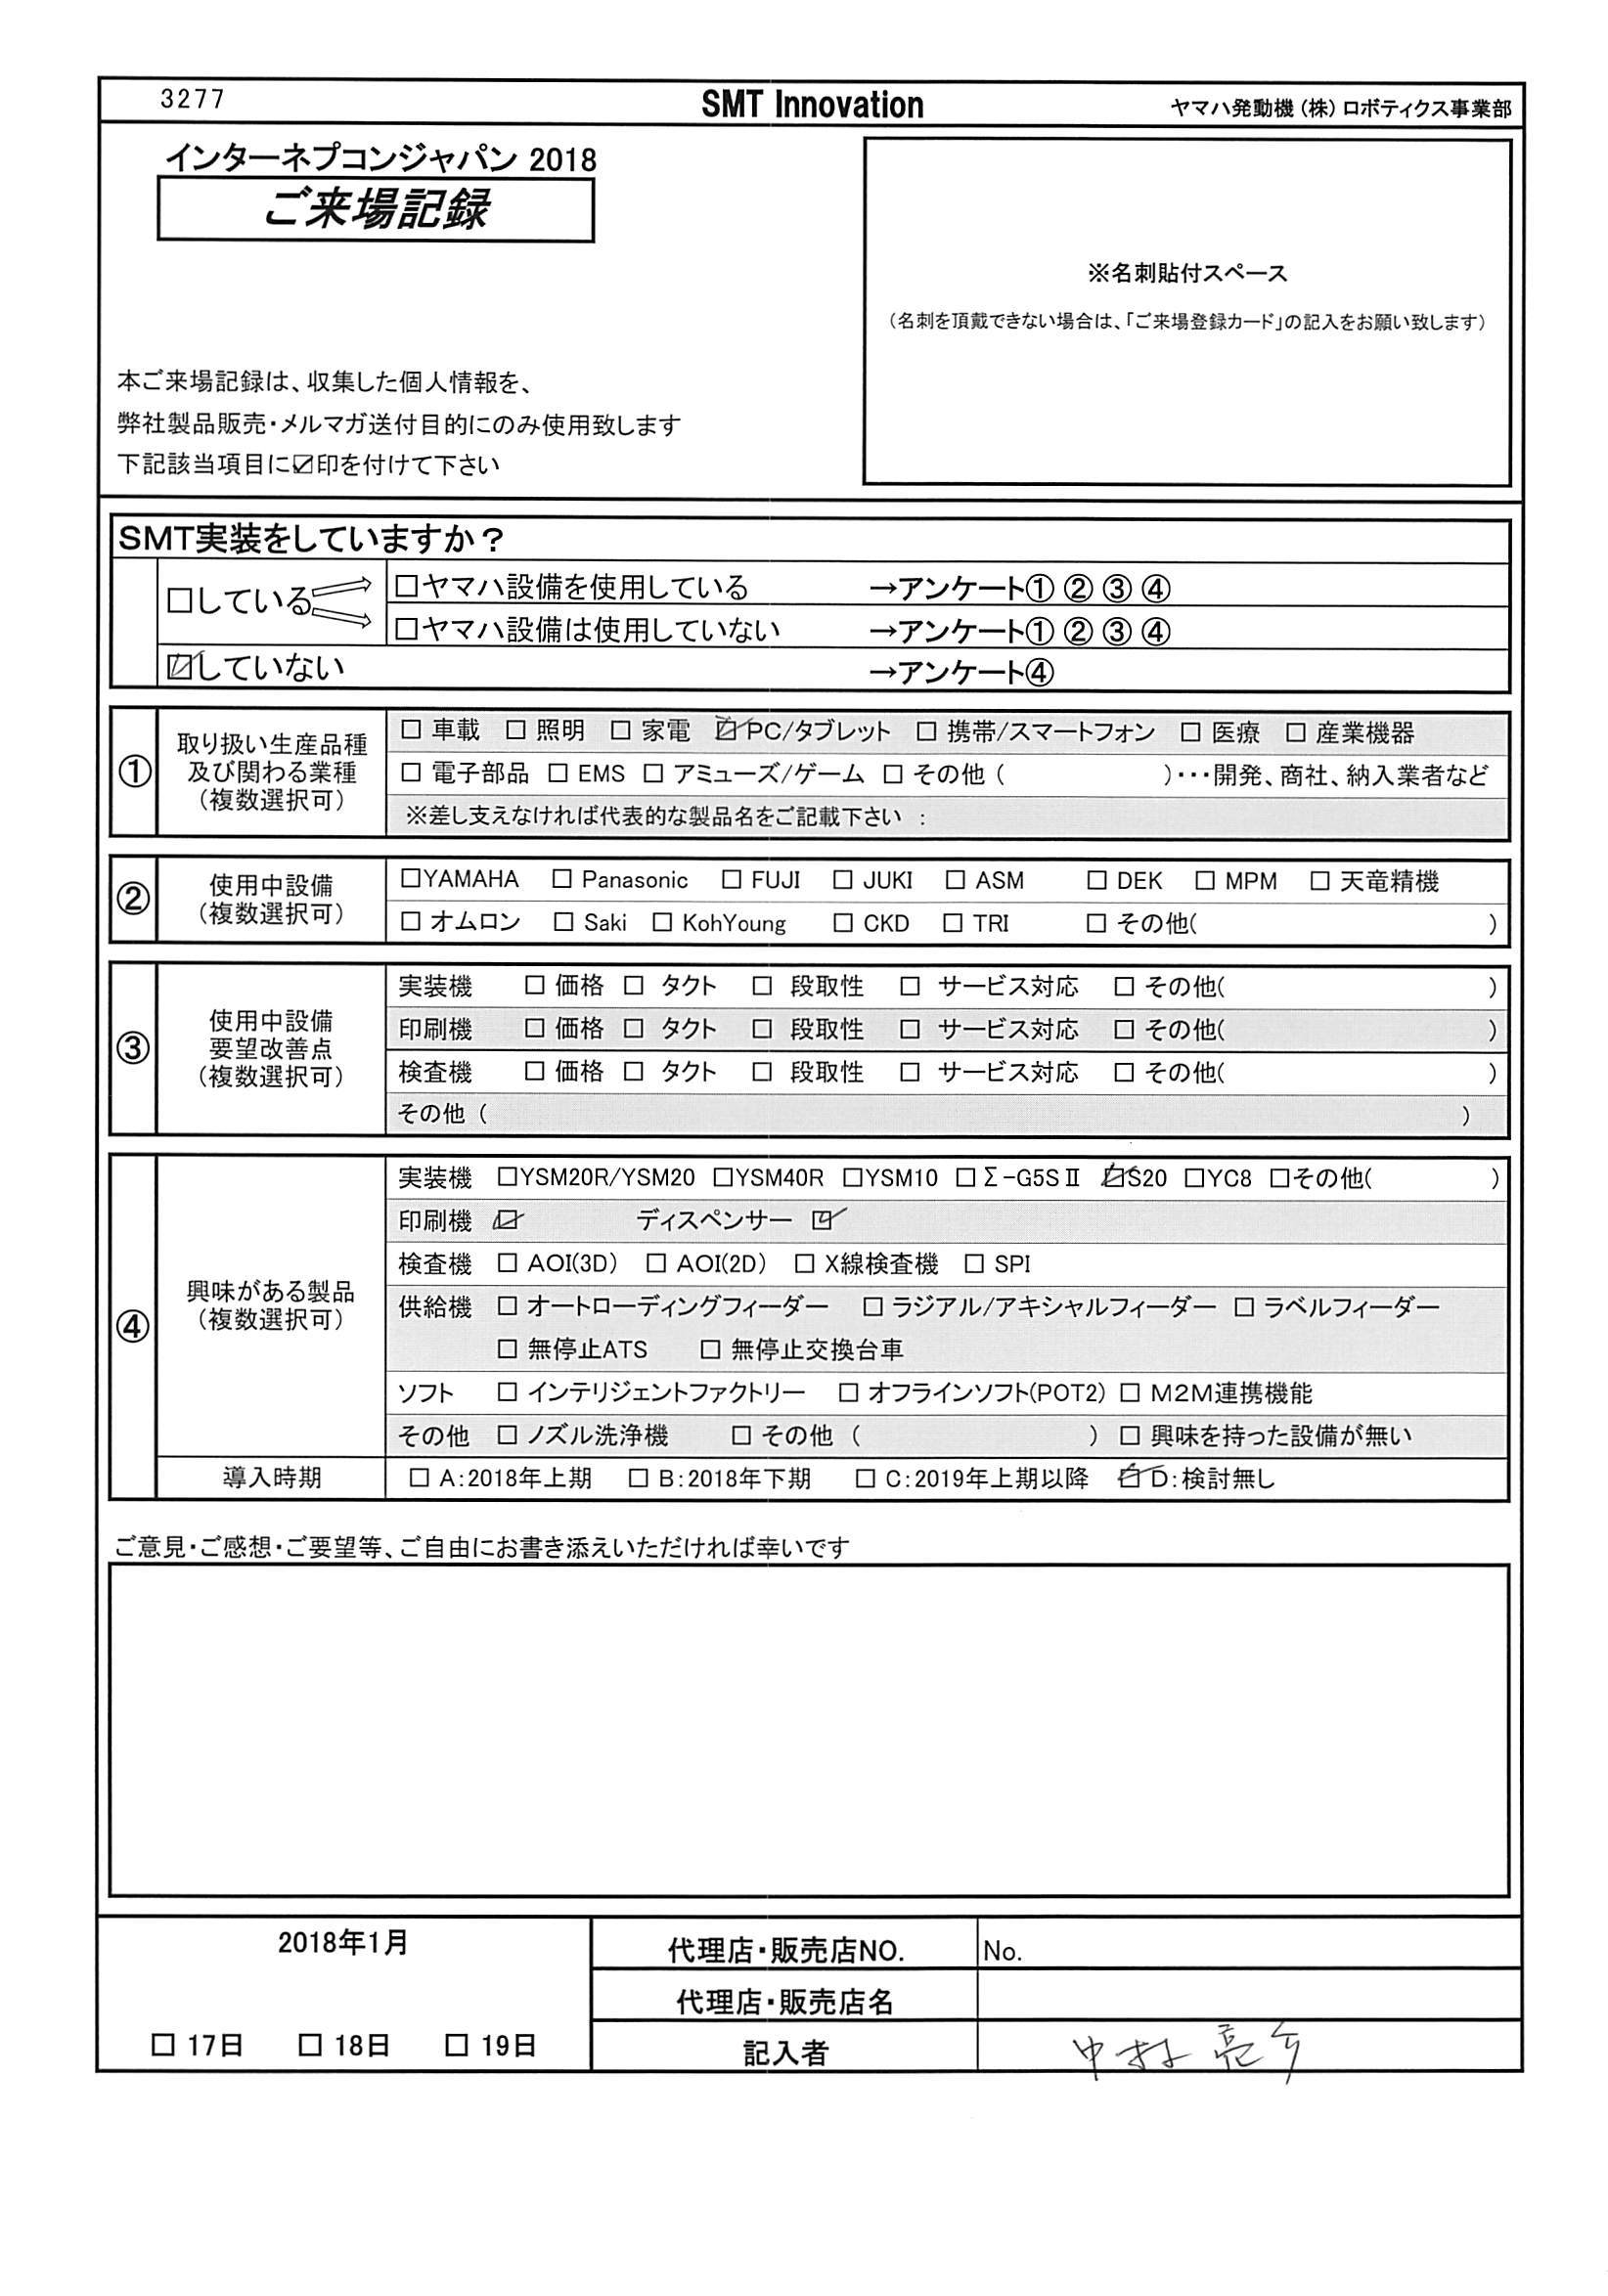 3277
SMT Innovation
ヤマハ発動機（株）ロボティクス事業部
インターネプコンジャパン 2018
ご来場記録
※名刺貼付スペース
（名刺を頂戴できない場合は、「ご来場登録カード」の記入をお願い致します）
本ご来場記録は、収集した個人情報を、
弊社製品販売・メルマガ送付目的にのみ使用致します
下記該当項目に☑印を付けて下さい
SMT実装をしていますか？
□している
□ヤマハ設備を使用している →アンケート① ② ③ ④
□ヤマハ設備は使用していない →アンケート① ② ③ ④
☑していない →アンケート④
① 取り扱い生産品種
及び関わる業種
（複数選択可）
□ 車載 □ 照明 □ 家電 ☑PC/タブレット □ 携帯/スマートフォン □ 医療 □ 産業機器
□ 電子部品 □ EMS □ アミューズ/ゲーム □ その他（ ）・・・開発、商社、納入業者など
※差し支えなければ代表的な製品名をご記載下さい ：
② 使用中設備
（複数選択可）
□YAMAHA □ Panasonic □ FUJI □ JUKI □ ASM □ DEK □ MPM □ 天竜精機
□ オムロン □ Saki □ KohYoung □ CKD □ TRI □ その他( )
③ 使用中設備
要望改善点
（複数選択可）
実装機 □ 価格 □ タクト □ 段取性 □ サービス対応 □ その他( )
印刷機 □ 価格 □ タクト □ 段取性 □ サービス対応 □ その他( )
検査機 □ 価格 □ タクト □ 段取性 □ サービス対応 □ その他( )
その他（ ）
④ 興味がある製品
（複数選択可）
実装機 □YSM20R/YSM20 □YSM40R □YSM10 □Σ-G5SⅡ ☑S20 □YC8 □その他( )
印刷機 ☑ ディスペンサー ☑
検査機 □ AOI(3D) □ AOI(2D) □ X線検査機 □ SPI
供給機 □ オートローディングフィーダー □ ラジアル/アキシャルフィーダー □ ラベルフィーダー
□ 無停止ATS □ 無停止交換台車
ソフト □ インテリジェントファクトリー □ オフラインソフト(POT2) □ M2M連携機能
その他 □ ノズル洗浄機 □ その他（ ） □ 興味を持った設備が無い
導入時期 □ A:2018年上期 □ B:2018年下期 □ C:2019年上期以降 ☑D:検討無し
ご意見・ご感想・ご要望等、ご自由にお書き添えいただければ幸いです
2018年1月
□ 17日 □ 18日 □ 19日
代理店・販売店NO. No.
代理店・販売店名
記入者 中村 亮介